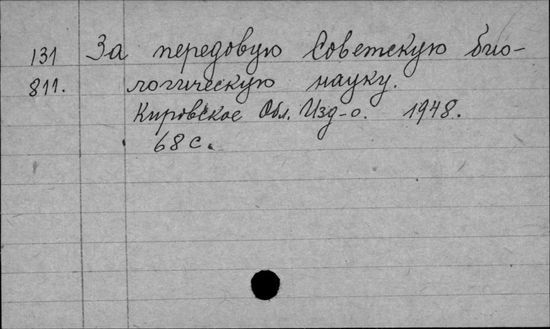 131 За передовую Советскую био-
811. логическую науку.
Кировское Обл. Изд-о. 1948.
68 с.